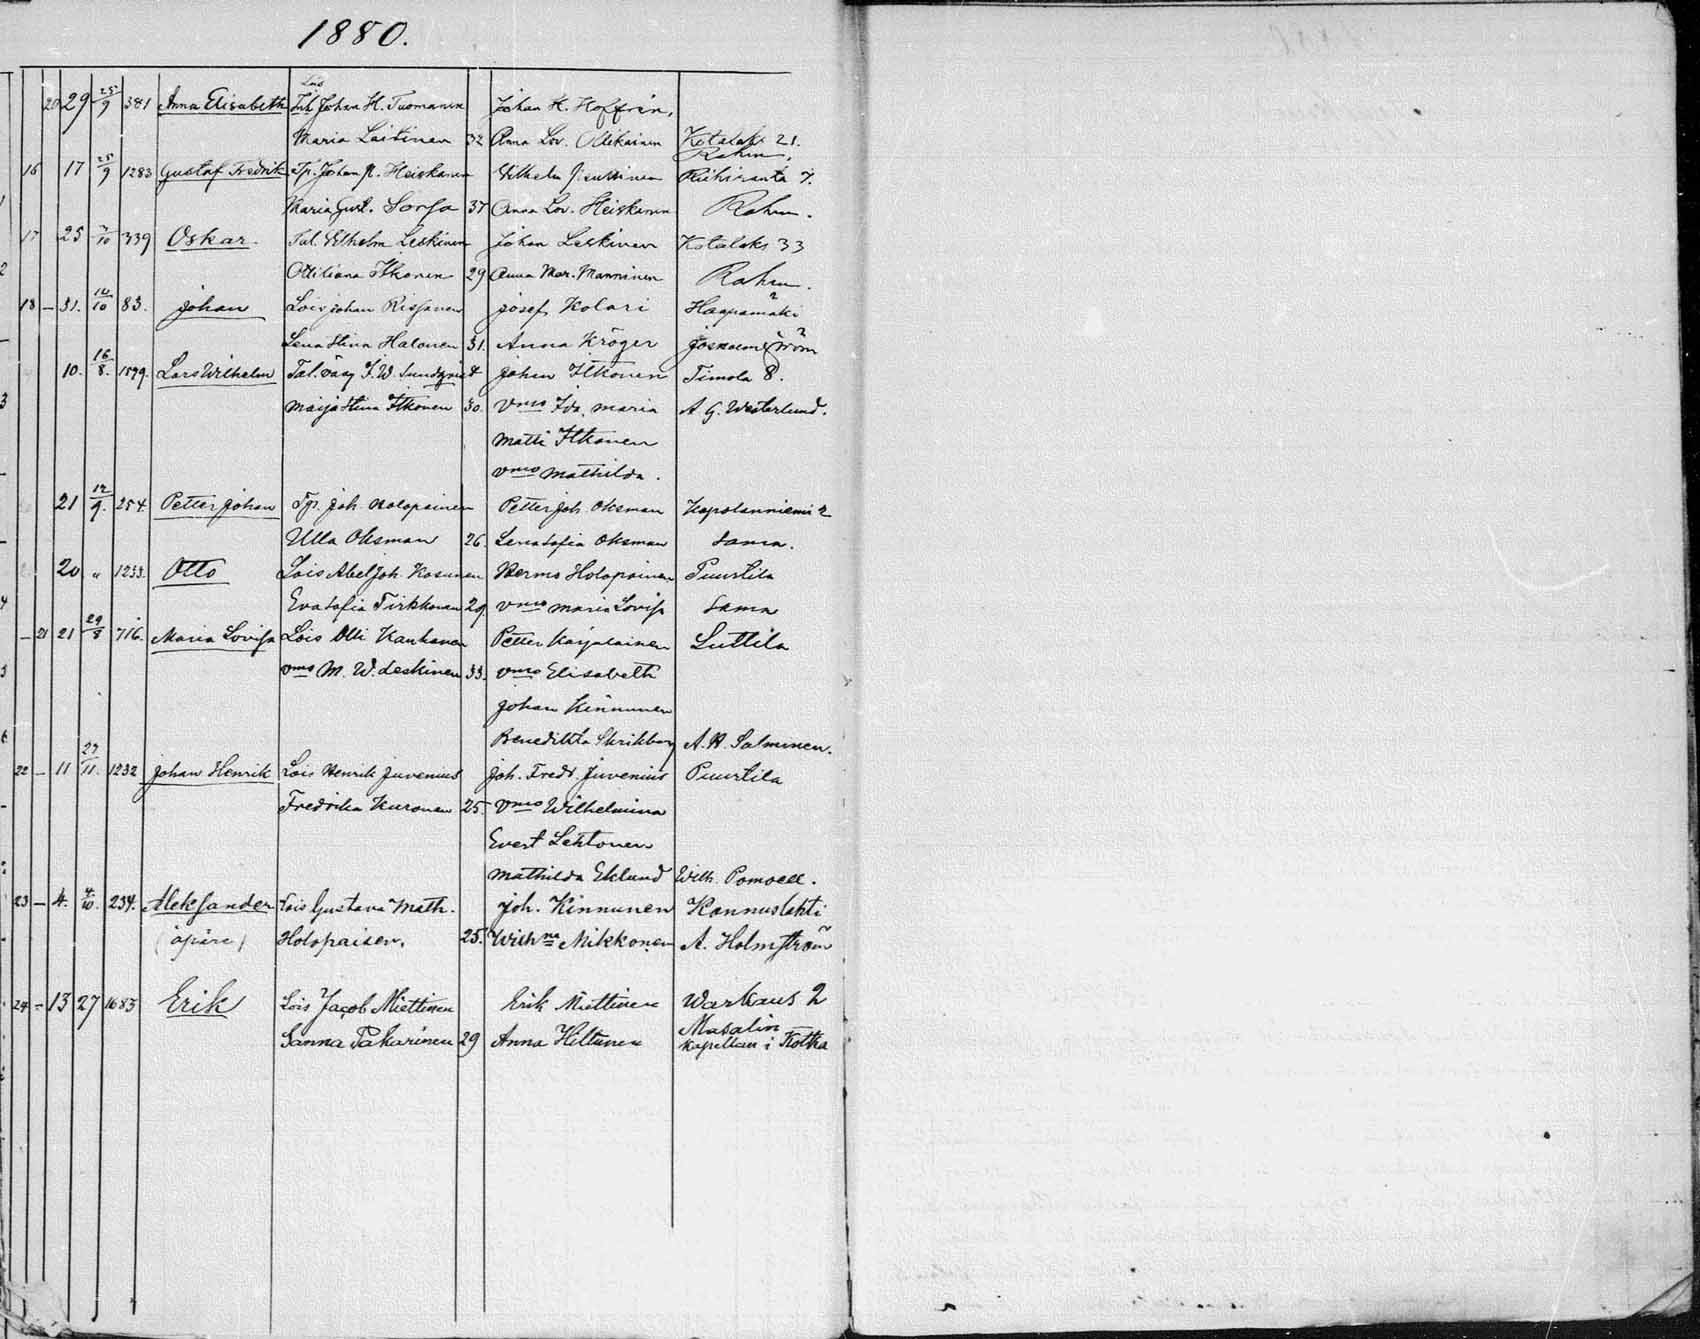 1880.
20 29 25/9 381 Anna Elisabeth Johan H. Tuomainen Johan H. Hoffrén,
Maria Laitinen 32 Anna Lov. Kotalaks 21.
Rahm.
16 17 25/9 1283 Gustaf Fredrik Johan P. Heiskanen Vilhelm Riihiranta 7.
Maria Gust. Sorsa 37 Anna Lov. Heiskanen Rahm.
17 25 3/10 339 Oskar. Tal. Vilhelm Leskinen Johan Leskinen Kotalaks 33
Ottiliana Itkonen 29 Anna Mar. Manninen Rahm.
18 – 31. 10/10 83. Johan Lois Johan Rissanen Josef Kolari Haapamäki
Lena Stina Halonen 31. Anna Kröger
10. 16/8. 1599. Lars Wilhelm Tal. S. W. Sundqvist Johan Itkonen Timola 8.
Maija Stina Itkonen 30. vmo Ida Maria A. G. Westerlund.
Matti Itkonen
vmo Mathilda.
21 12/9. 254. Petter Johan Joh. Holopainen Petter Joh. Oksman Kopolanniemi 2
Ulla Oksman 26. Lena Sofia Oksman Sama.
20 " 1233. Otto Lois Abel Joh. Kosunen Hermo Holopainen Puurtila
Eva Sofia Tirkkonen 29. vmo Maria Lovisa Sama
– 21 21 29/8 716. Maria Lovisa Lois Olli Kauhanen Petter Karjalainen Luttila
vmo M. W. Leskinen 33. vmo Elisabeth
Johan Kinnunen
Benedikta Skrikberg A. H. Salminen.
22 – 11 27/11. 1232 Johan Henrik Lois Henrik Juvenius Joh. Fredr. Juvenius Puurtila
Fredrika Kuronen 25. vmo Wilhelmina
Evert Lehtonen
Mathilda Eklund Wilh. Pomoell.
23 – 4. 4/10. 234. Aleksander Lois Gustava Math. Joh. Kinnunen Konnuslahti
(äpäre) Holopaisen. 25. Wilhna Mikkonen A. Holmström
24 – 13 27 1683 Erik Lois Jacob Miettinen Erik Miettinen Warkaus 2
Sanna Pakarinen 29 Anna Hiltunen Masalin
kapellan i Kotka